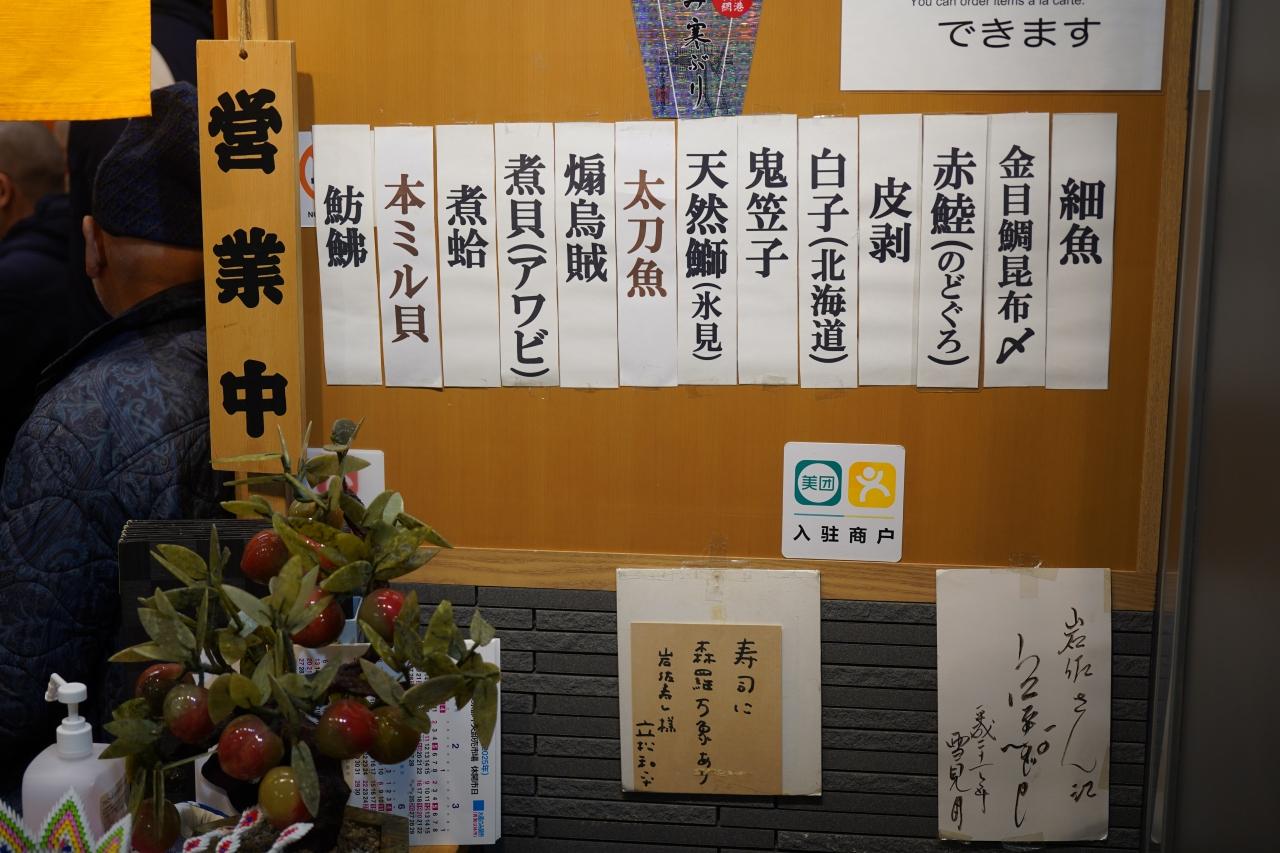 You can order items a la carte.
できます
み寒ぶり
営業中
細魚
金目鯛昆布〆
赤鯥(のどぐろ)
皮剥
白子(北海道)
鬼笠子
天然鰤(氷見)
太刀魚
煽烏賊
煮貝(アワビ)
煮蛤
本ミル貝
魴鮄
美团
入驻商户
寿司に
森羅万象あり
岩佐寿し様
立松和平
岩佐さん江
雪見月
2025年)
休開市日